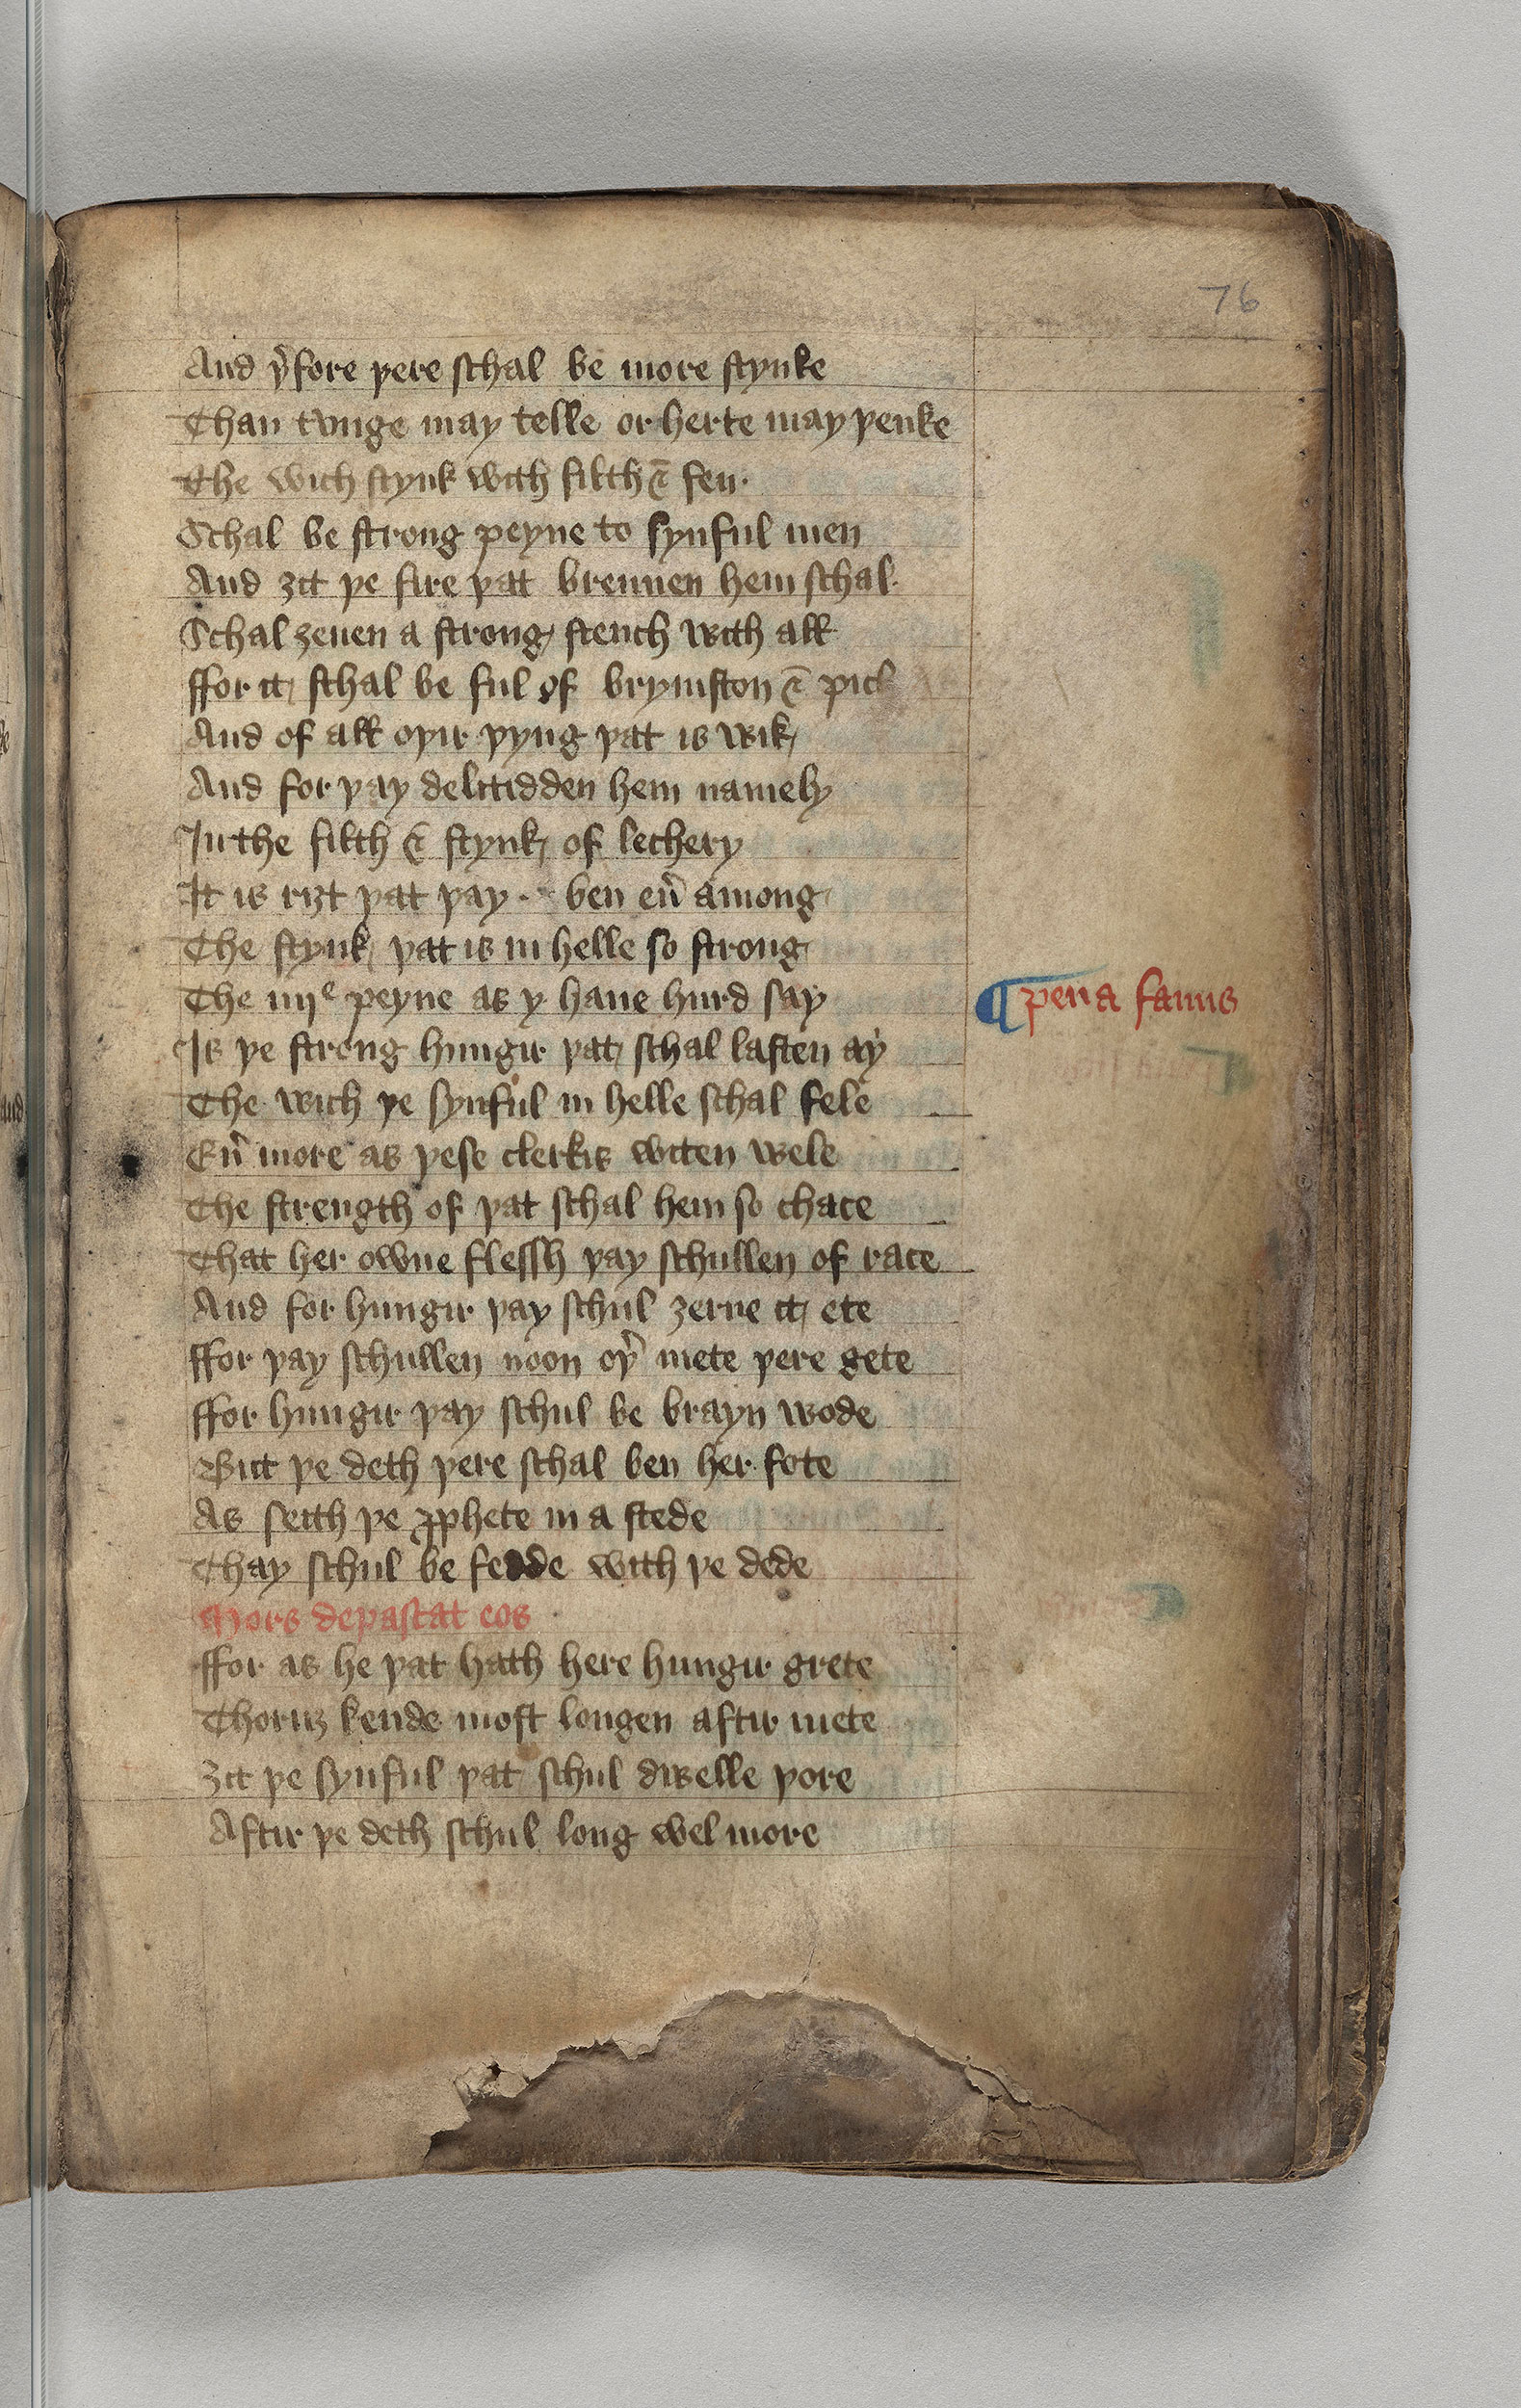 76
And þ̉fore þere schal be more stynke
Than tunge may telle or herte may þenke
The wich stynk with filth & fen.
Schal be strong peyne to synful men
And ȝit þe fire þat brennen hem schal.
Schal ȝeuen a strong stench with all
ffor it schal be ful of brymston & pick
And of all oþir þyng þat is wik
And for þay delitidden hem namely
In the filth & stynk of lechery
It is riȝt þat þay. ben eủ among
The stynk þat is in helle so strong
The iiijᵉ peyne as y haue hurd say
¶ pena famis
Is þe strong hungir þat schal lasten ay
The wich þe synful in helle schal fele
Eủ more as þese clerkis witen wele
The strength of þat schal hem so chace
That her owne flessh þay schullen of race
And for hungir þay schul ȝerne it ete
ffor þay schullen noon oþ̉ mete þere gete
ffor hungir þay schul be brayn wode
But þe deth þere schal ben her fote
As seith þe ꝓphete in a stede
Thay schul be fedde with þe dede
Mors depastat eos
ffor as he þat hath here hungir grete
Thoruȝ kende most longen aftir mete
Ȝit þe synful þat schul dwelle þore
Aftir þe deth schul long wel more